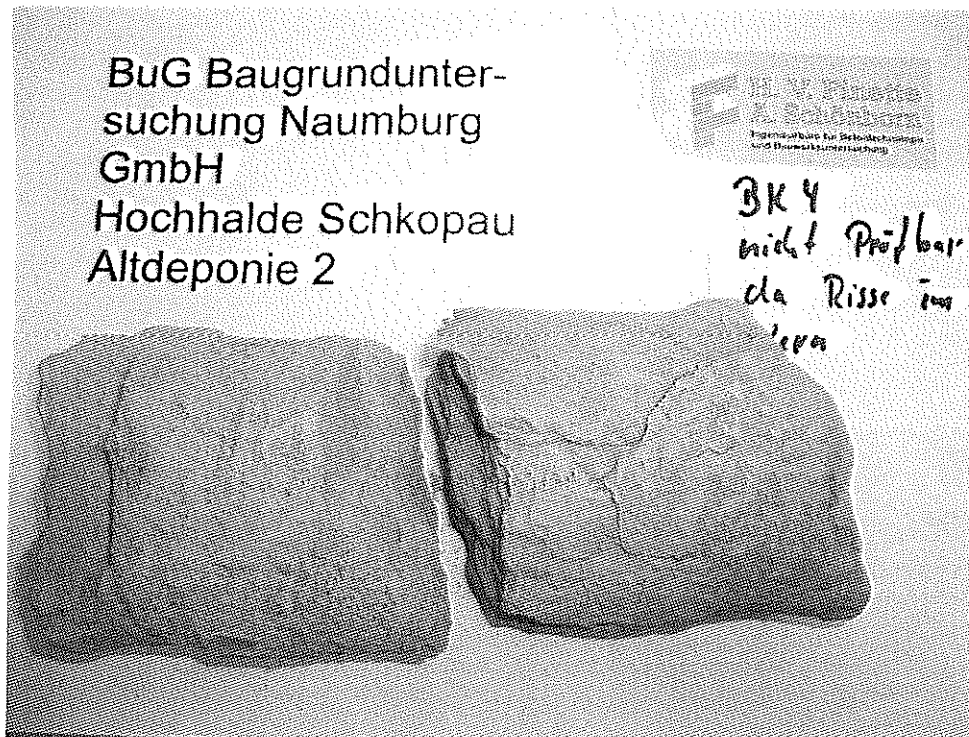 BuG Baugrundunter-
suchung Naumburg
GmbH
Hochhalde Schkopau
Altdeponie 2
Ingenieurbüro für Betontechnologie
und Bauwerksuntersuchung
BK 4
nicht Prüfbar
da Risse im